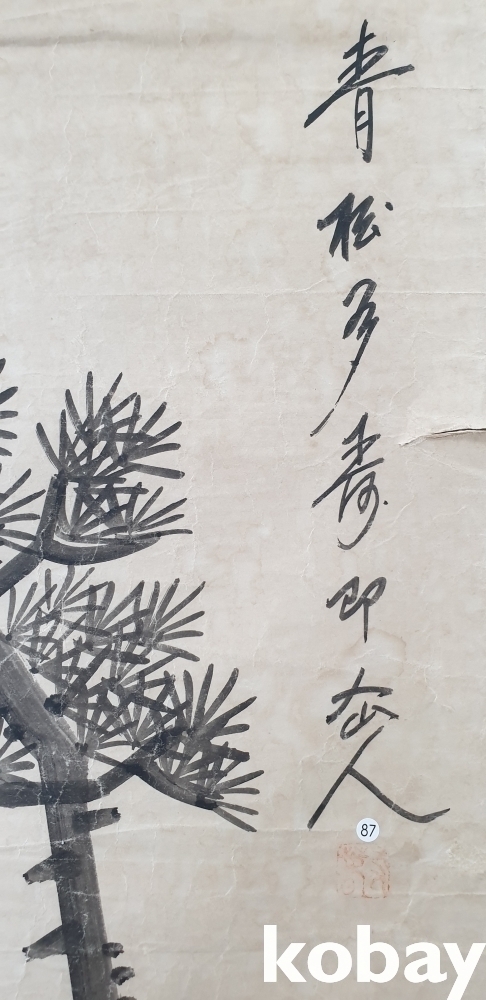 青松多壽即仙人
87
kobay